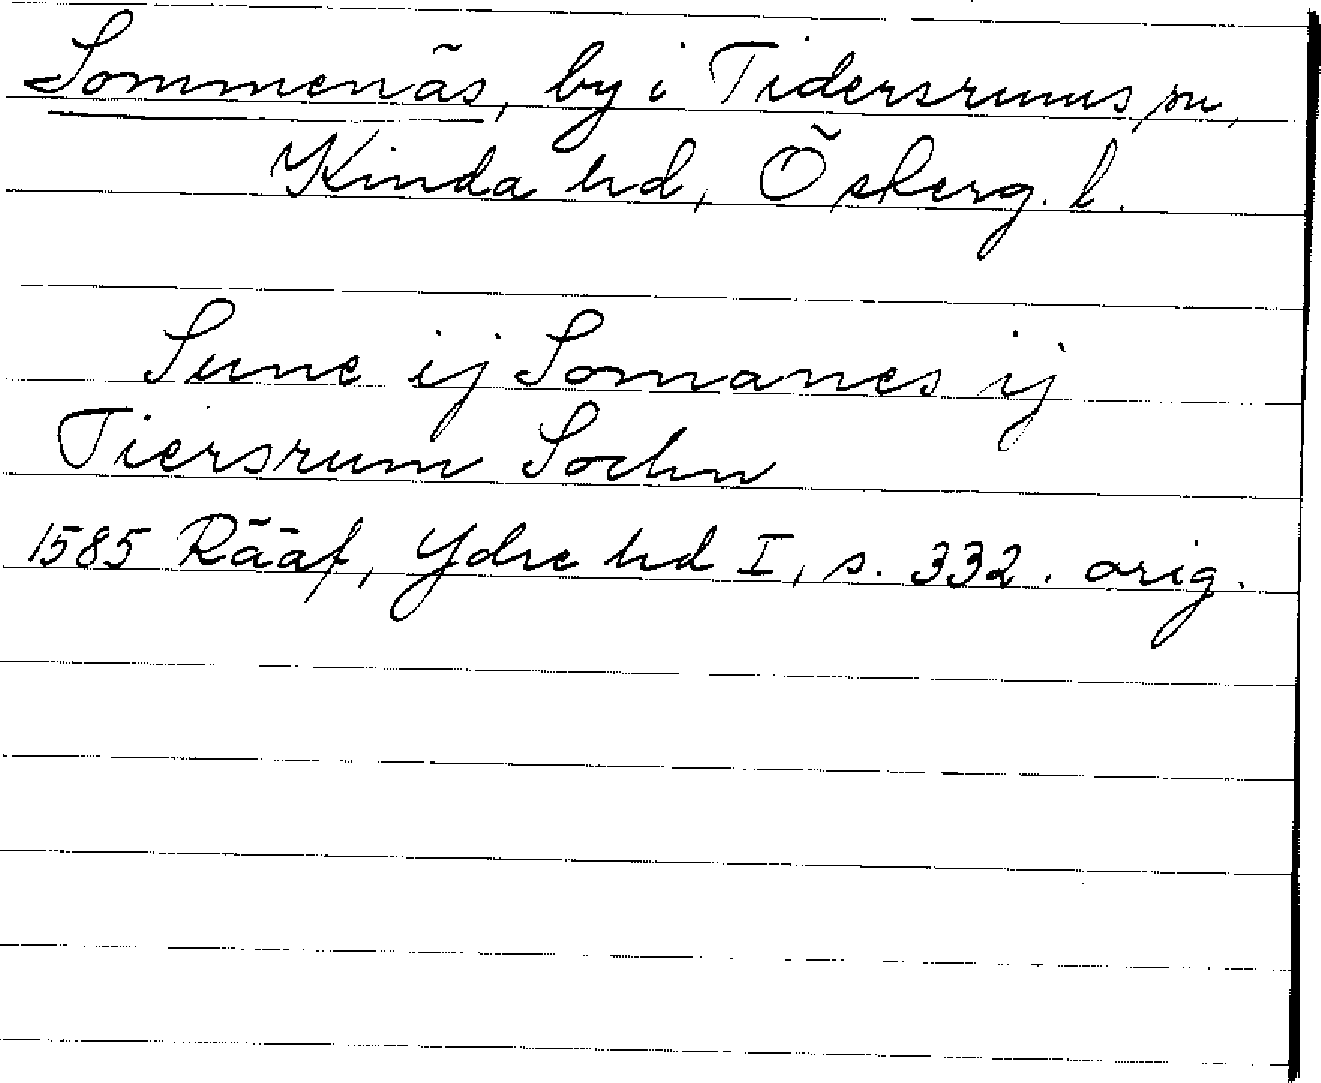 Sommenäs, by i Tidersrums sn,
Kinda hd, Österg. l.
Sune ij Somanes ij
Tiersrum Sochn
1585 Rääf, Ydre hd I, s. 332. orig.